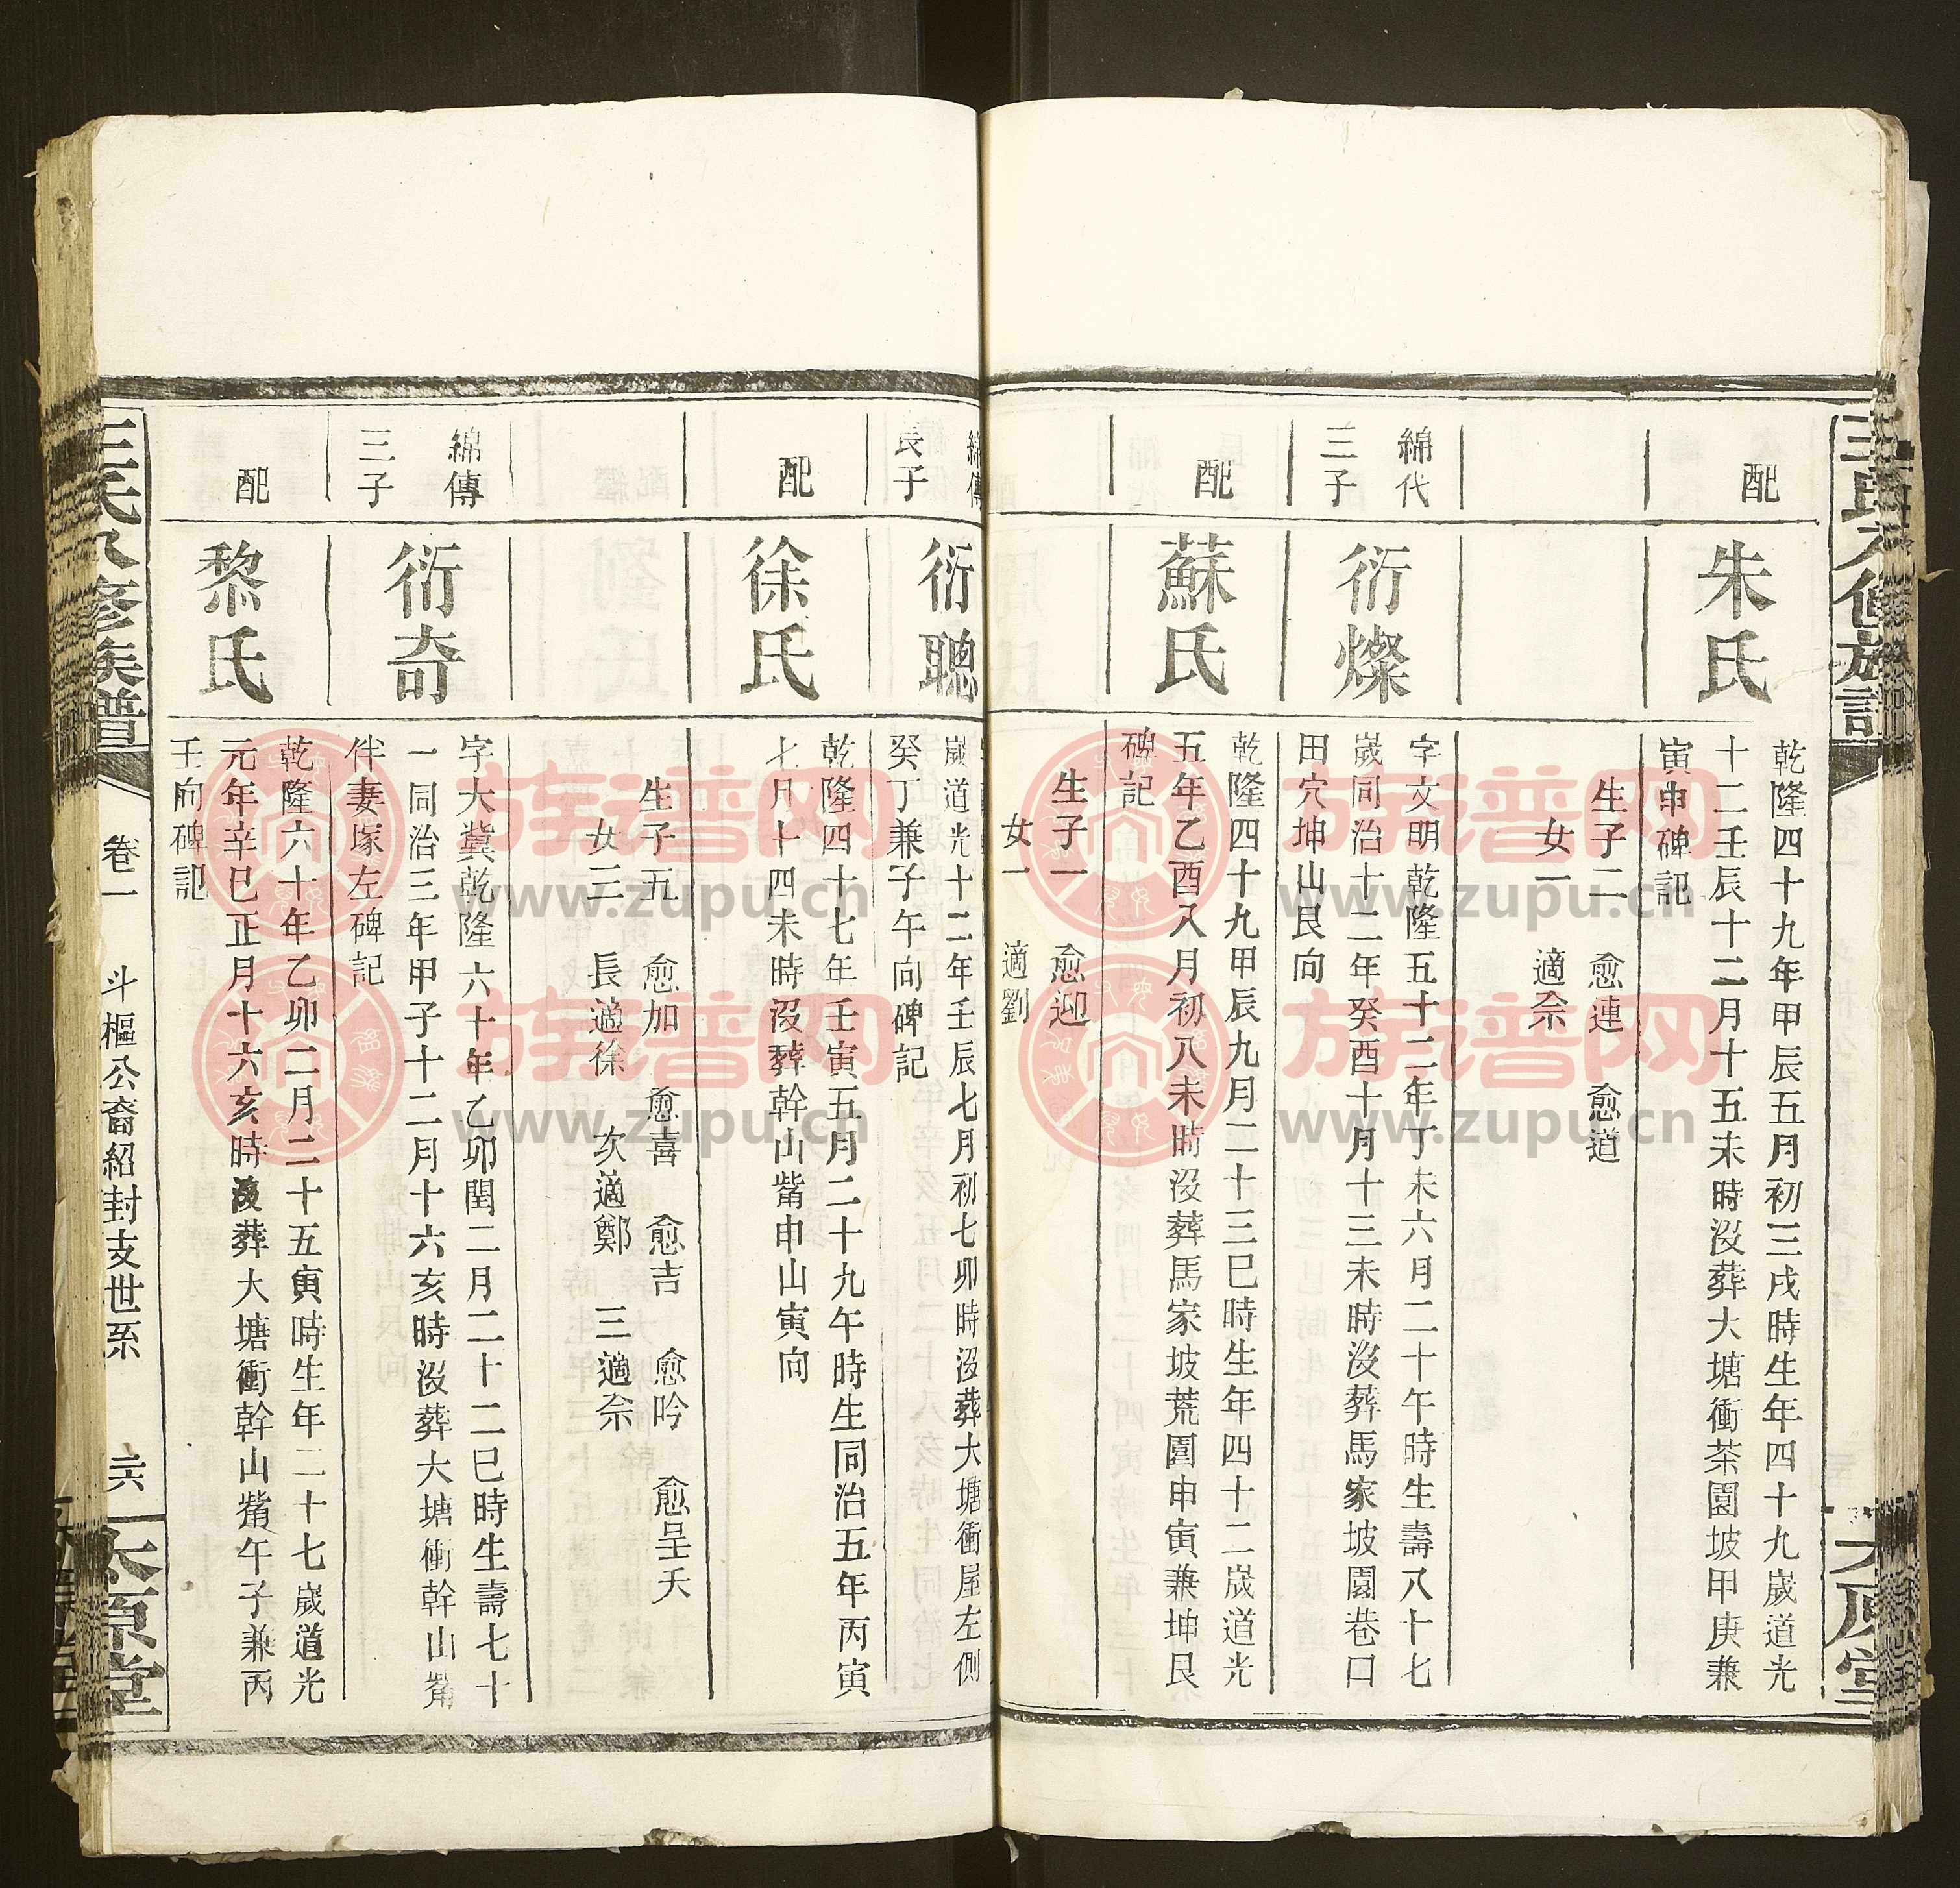 配
朱氏
乾隆四十九年甲辰五月初三戌時生年四十九歲道光
十二壬辰十二月十五未時沒葬大塘衝茶園坡甲庚兼
寅申碑記
生子二 愈連 愈道
女一 適佘
綿代
三子
衍燦
字文明乾隆五十二年丁未六月二十午時生壽八十七
歲同治十二年癸酉十月十三未時沒葬馬家坡園巷口
田穴坤山艮向
配
蘇氏
乾隆四十九甲辰九月二十三巳時生年四十二歲道光
五年乙酉八月初八未時沒葬馬家坡荒園申寅兼坤艮
碑記
生子一 愈迎
女一 適劉
綿傳
長子
衍聰
歲道光十二年壬辰七月初七卯時沒葬大塘衝屋左側
癸丁兼子午向碑記
配
徐氏
乾隆四十七年壬寅五月二十九午時生同治五年丙寅
七月十四未時沒葬幹山觜申山寅向
生子五 愈加 愈喜 愈吉 愈吟 愈呈夭
女三 長適徐 次適鄭 三適佘
綿傳
三子
衍奇
字大冀乾隆六十年乙卯閏二月二十二巳時生壽七十
一同治三年甲子十二月十六亥時沒葬大塘衝幹山觜
伴妻塚左碑記
配
黎氏
乾隆六十年乙卯二月二十五寅時生年二十七歲道光
元年辛巳正月十六亥時沒葬大塘衝幹山觜午子兼丙
壬向碑記
王氏八修族譜
卷一 斗樞公裔紹封支世系 六
太原堂
族谱网
www.zupu.cn
族谱网
www.zupu.cn
族谱网
www.zupu.cn
族谱网
www.zupu.cn